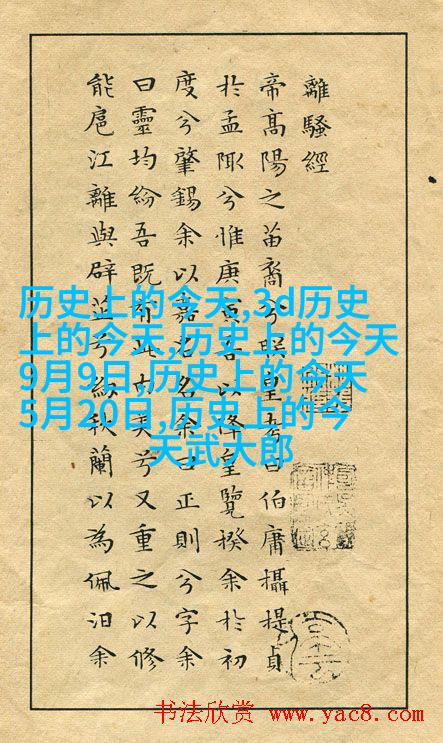 離騷經
帝高陽之苗裔兮朕皇考曰伯庸攝提貞
於孟陬兮惟庚寅吾以降皇覽揆余於初
度兮肇錫余以嘉名名余曰正則兮字余
曰靈均紛吾既有此內美兮又重之以修
能扈江離與辟芷兮紉秋蘭以為佩汨余
历史上的今天,3d历史
上的今天,历史上的今天
9月9日,历史上的今天
5月20日,历史上的今
天武大郎
书法欣赏 www.yac8.com